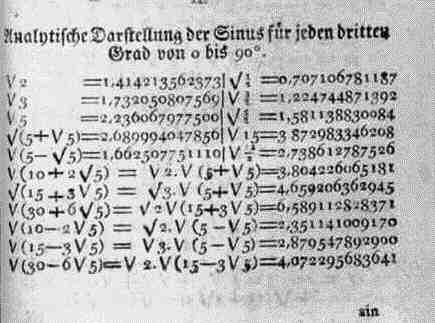 Analytische Darstellung der Sinus für jeden dritten
Grad von 0 bis 90°.
V 2 =1,414213562373|√½=0,707106781187
V 3 =1,732050807569|√3/2=1,224744871392
V 5 =2,236067977500|√5/2=1,581138830084
√(5+V5)=2,689994047856|V15=3,872983346208
V(5−√5)=1,662507751110|V15/2=2,738612787526
V(10+2√5) = V2.V(5+V5)=3,804226065181
√(15+3√5) = √3.V(5+V5)=4,659206362945
V(30+6√5)= √2V(15+3V5)=6,589112828371
V(10−2V5) = √2.V(5−V5)=2,351141009170
V(15−3V5) = V3.V(5−V5)=2,879547892900
V(30−6V5)=V2.V(15−3V5)=4,072295683641
sin